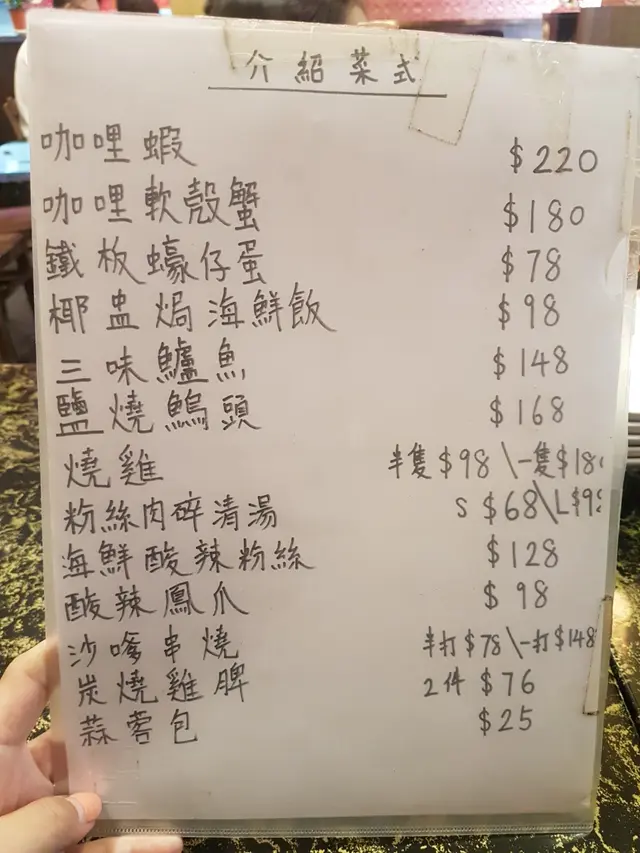 介紹菜式
咖哩蝦 $220
咖哩軟殼蟹 $180
鐵板蠔仔蛋 $78
椰盅焗海鮮飯 $98
三味鱸魚 $148
鹽燒鷠頭 $168
燒雞 半隻$98\一隻$18
粉絲肉碎清湯 S $68\L$9
海鮮酸辣粉絲 $128
酸辣鳳爪 $98
沙嗲串燒 半打$78\一打$148
炭燒雞髀 2件 $76
蒜蓉包 $25